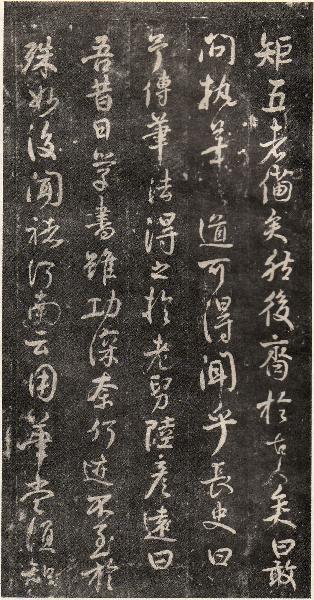 矩五者備矣然後齊於古人矣曰敢
問執筆道可得聞乎長史曰
予傳筆法得之於老舅陸彥遠曰
吾昔日學書雖功深奈何迹不至於
殊妙後聞褚河南云用筆當須知